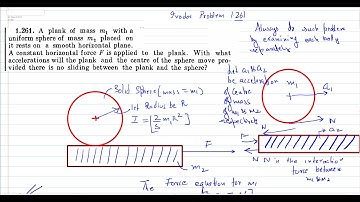 Irodov Problem 1.261
1.261. A plank of mass m₁ with a
uniform sphere of mass m₂ placed on
it rests on a smooth horizontal plane.
A constant horizontal force F is applied to the plank. With what
accelerations will the plank and the centre of the sphere move pro-
vided there is no sliding between the plank and the sphere?
Always do such problem
by examining each body
separately
Solid Sphere (mass = m₁)
let Radius be R
I = [2/5 m₁R²]
m₂
F
Let a₁ & a₂
be acceleration
of centre
of mass
of m₁ & m₂
respectively
m₁
a₁
N
N
a₂
F
N is the interaction
force between
m₁ & m₂
The Force equation for m₁